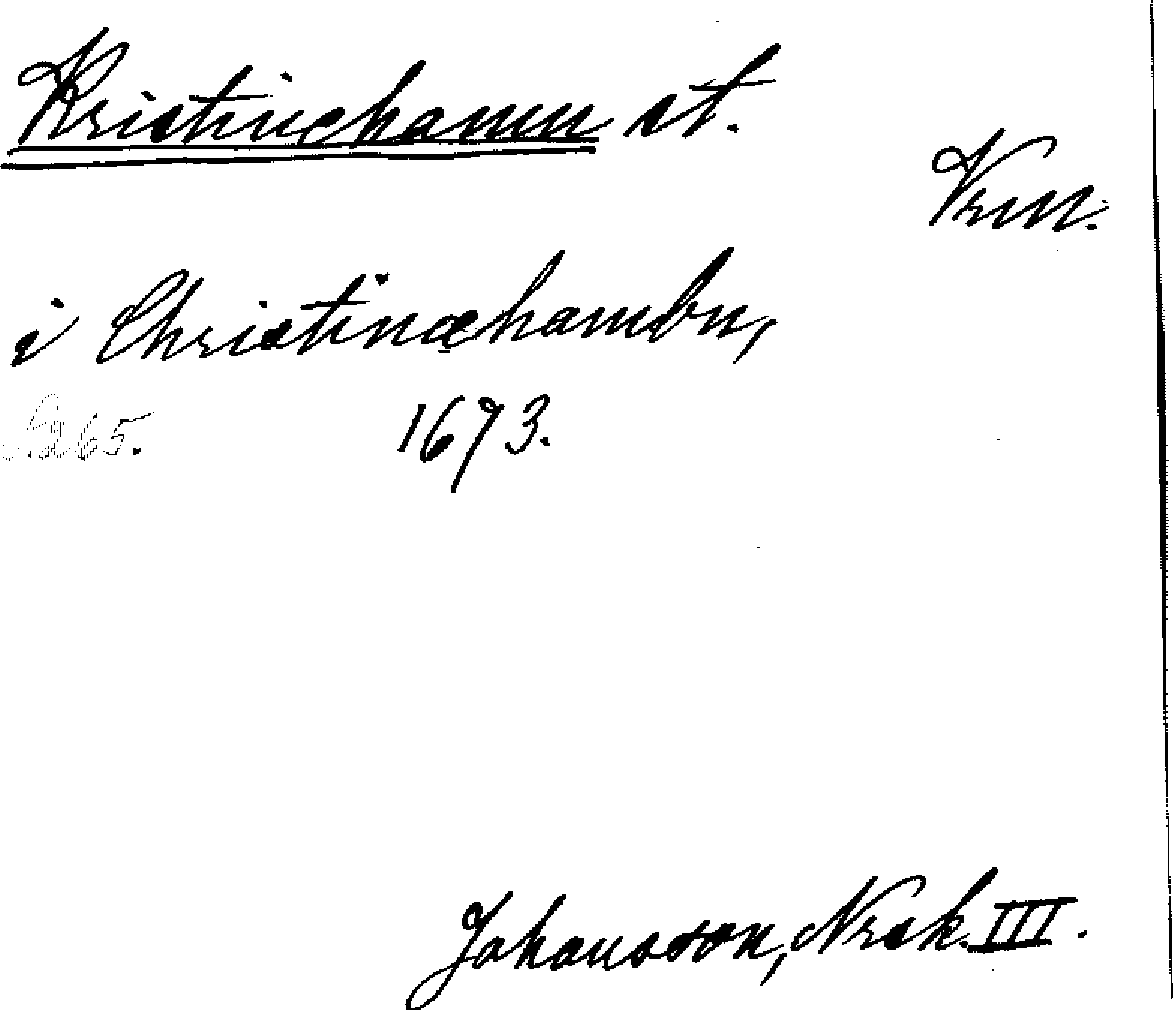 Kristinehamn st.
Vrm.
i Christinæhambn,
S. 265. 1673.
Johansson, Nrsk. III.